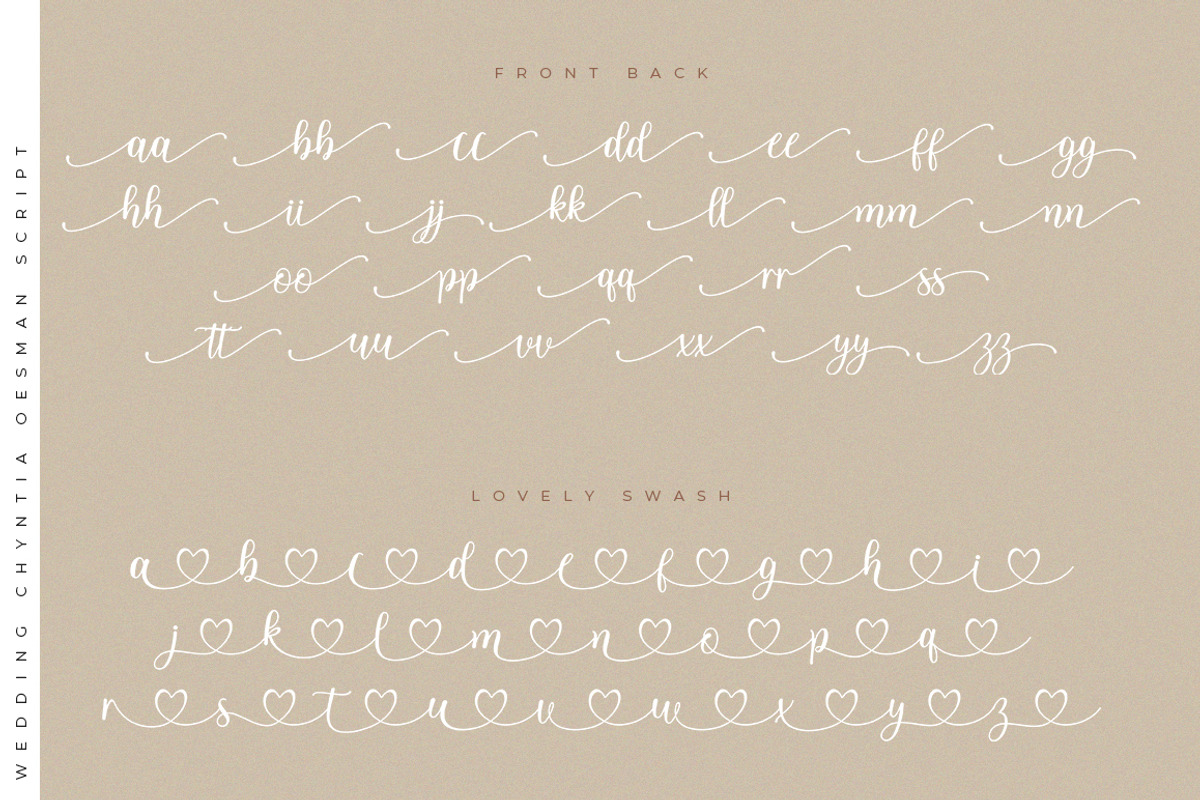 WEDDING CHYNTIA OESMAN SCRIPT
FRONT BACK
aa bb cc dd ee ff gg
hh ii jj kk ll mm nn
oo pp qq rr ss
tt uu vv xx yy zz
LOVELY SWASH
a b c d e f g h i
j k l m n o p q
r s t u v w x y z